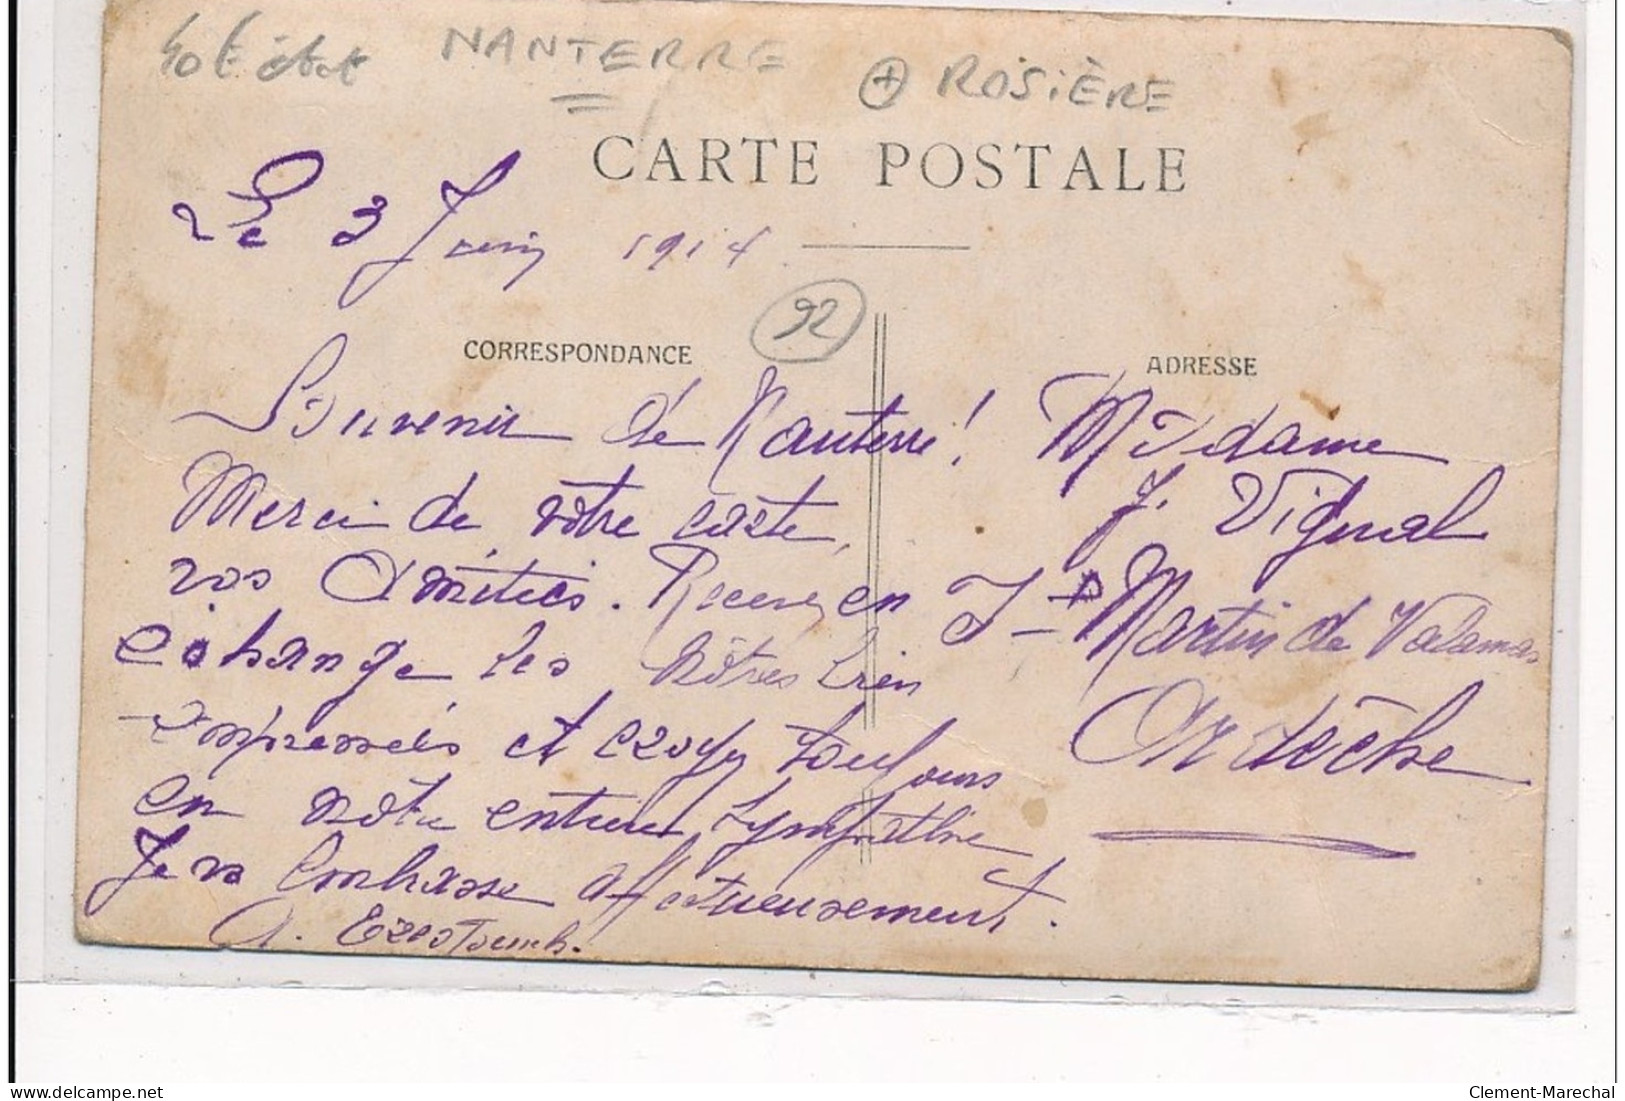 état NANTERRE + ROSIÈRE
CARTE POSTALE
Le 3 Juin 1914
92
CORRESPONDANCE
ADRESSE
Souvenir de Nanterre!
Merci de vôtre carte,
vos Amitiés. Recevez en
échange les nôtres bien
empressées et croyez toujours
en nôtre entière sympathie
Je vs Embrasse affectueusement.
A.
Madame
J. Vignal
St Martin de Valamas
Ardèche
delcampe.net
Clement-Marechal